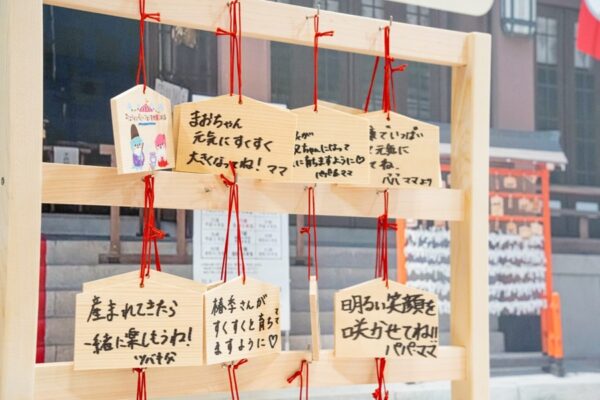 まおちゃん
元気にすくすく
大きくなってね! ママ
が
兄ちゃんになって
に育ちますように♡
パパ&ママ
ていっぱい
元気に
てね、
パパ ママより
産まれてきたら
一緒に楽しもうね!
椿季さんが
すくすくと育ちて
ますように♡
明るい笑顔を
咲かせてね!!
パパ・ママ